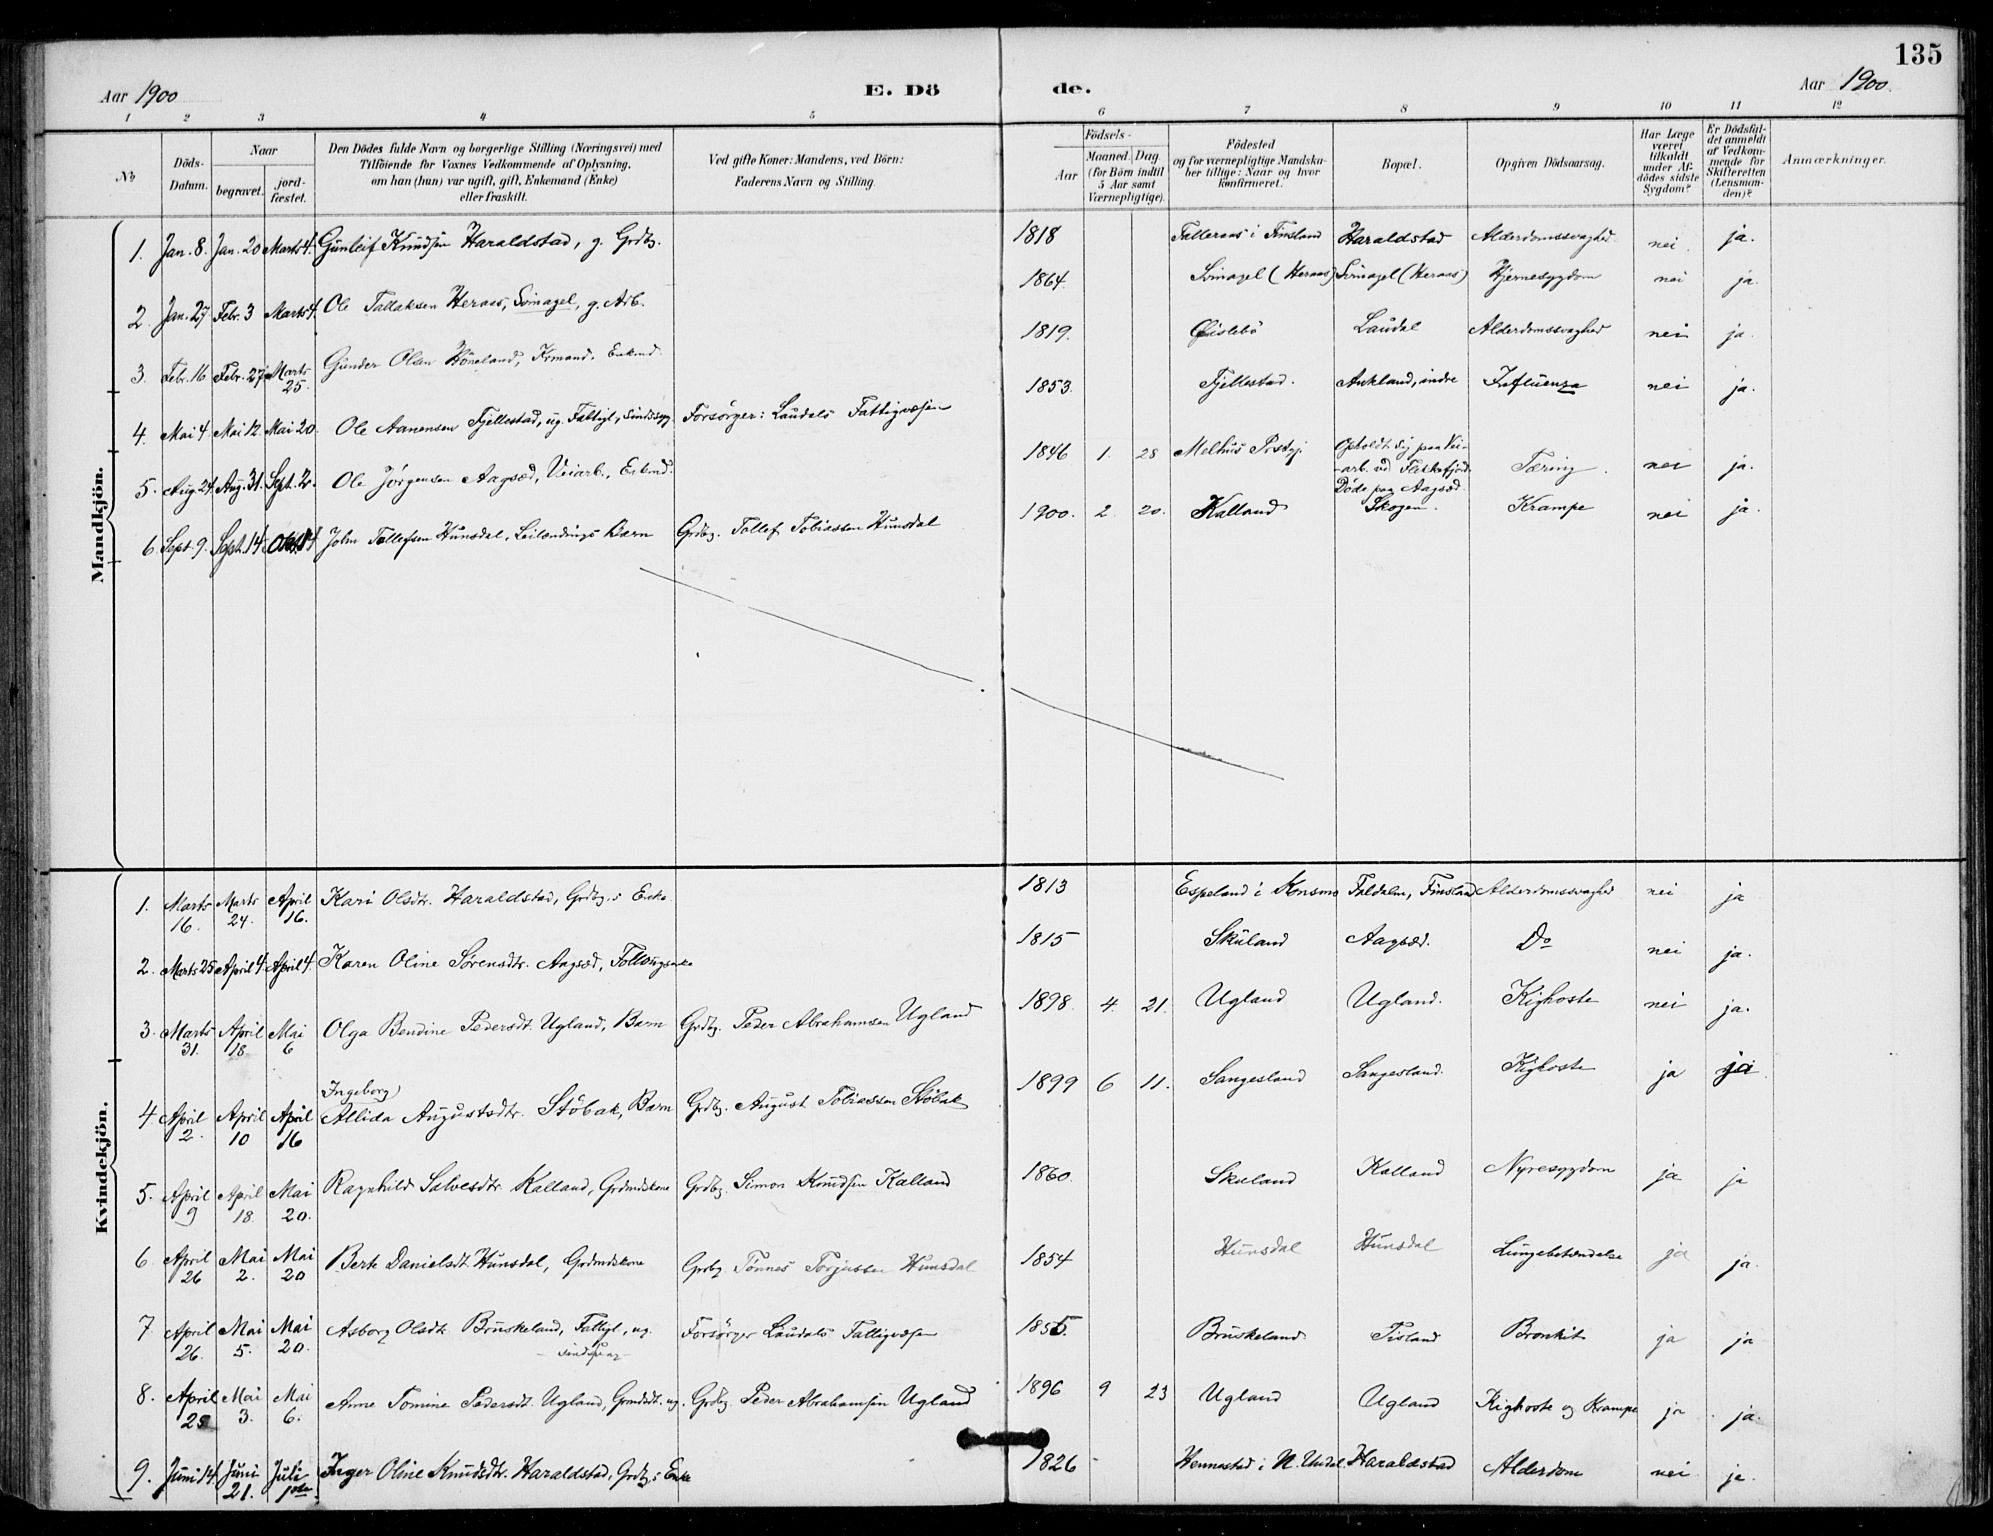 135
Aar 1900
E. Dö de.
Aar 1900.
1 2 3 4 5 6 7 8 9 10 11 12
№
Döds-Datum.
Naar
begravet.
jord-fæstet.
Den Dödes fulde Navn og borgerlige Stilling (Næringsvei) med
Tilföiende for Voxnes Vedkommende af Oplysning,
om han (hun) var ugift, gift, Enkemand (Enke)
eller fraskilt.
Ved gifte Koner: Mandens, ved Börn:
Faderens Navn og Stilling.
Födsels-
Aar
Maaned. Dag
(for Börn indtil
5 Aar samt
Værnepligtige).
Födested
og for værnepligtige Mandska-
ber tillige: Naar og hvor
konfirmeret.
Bopæl.
Opgiven Dödsaarsag.
Har Læge
været
tilkaldt
under Af-
dödes sidste
Sygdom?
Er Dödsfal-
det anmeldt
af Vedkom-
mende for
Skifteretten
(Lensman-
den)?
Anmærkninger.
Mandkjön.
1. Jan. 8. Jan. 20 Marts 4. Gunleif Knudsen Haraldstad, g. Grdbg. 1818 Talleraas i Finsland Haraldstad Alderdomssvaghed nei. ja.
2. Jan. 27 Febr. 3 Marts 4. Ole Tallaksen Heraas, Svinagel, g. Arb. 1864. Svinagel (Heraas) Svinagel (Heraas) Hjernesygdom nei ja.
3. Febr. 16 Febr. 27 Marts 25. Gunder Olsen Höneland, Krmand. Enkmd. 1819. Øislebö Laudal Alderdomssvaghed nei ja.
4. Mai 4 Mai 12. Mai 20. Ole Aanensen Fjellestad, ug. Fattigl., sindssyg Forsörger: Laudals Fattigvæsen 1853. Fjellestad. Aukland, indre Influenza nei ja.
5. Aug. 24. Aug. 31. Sept. 2. Ole Jörgensen Aagsæd, Veiarb., Enkmd. 1846 1. 28 Melhus Prstgj. Opholdt sig paa Vei-
arb. ved Flekkefjord.
Döde paa Aagsæd. Tæring. nei ja.
6. Sept. 9. Sept. 14 Okt. 14 John Tollefsen Hunsdal, Leilændings Barn Grdbg. Tollef Tobiassen Hunsdal 1900. 2. 20. Kalland Skogen. Krampe nei ja.
Kvindekjön.
1. Marts 16. Marts 24. April 16. Kari Olsdtr. Haraldstad, Grdbg.s Enke. 1813 Espeland i Konsmo Faldalen, Finsland Alderdomssvaghed nei ja
2. Marts 25 April 4. April 4. Karen Oline Sörensdtr. Aagsæd, Föllougsenke 1815 Skuland Aagsæd. Do nei ja.
3. Marts 31. April 18. Mai 6 Olga Bendine Pedersdt. Ugland, Barn Grdbg. Peder Abrahamsen Ugland 1898. 4. 21. Ugland Ugland. Kighoste nei ja.
Ingeborg
4 April 2. April 10 April 16 Allida Augustsdtr. Stöbak, Barn Grdbg. August Tobiassen Stöbak 1899 6 11. Sangesland Sangesland. Kighoste ja ja
5. April 9 April 18. Mai 20. Ragnhild Salvesdtr. Kalland, Grdmdskone Grdbg. Simon Knudsen Kalland 1860. Skuland Kalland Nyresygdom ja ja
6. April 26 Mai 2. Mai 20 Berte Danielsdt. Hunsdal, Grdmdskone Grdbg. Tönnes Torjussen Hunsdal 1854 Hunsdal Hunsdal Lungebetændelse ja ja.
7 April 26. Mai 5. Mai 20. Asborg Olsdtr. Bruskeland, Fattigl., ug. Forsörger Laudals Fattigvæsen 1855. Bruskeland Tisland Bronkit ja ja
sindssyg
8. April 28 Mai 3. Mai 6. Anne Tomine Pedersdt. Ugland, Grmdsdt. ug. Grdbg. Peder Abrahamsen Ugland 1896 9 23 Ugland Ugland Kighoste og Krampe ja ja.
9. Juni 14. Juni 21. Juli 1ste. Inger Oline Knudsdtr. Haraldstad, Grdbg.s Enke 1826 Hennestad i N. Undal Haraldstad Alderdom nei ja.